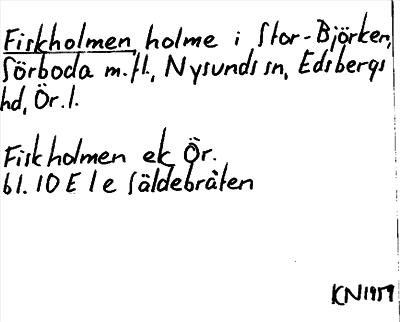 Fiskholmen, holme i Stor-Björken,
Sörboda m.fl., Nysunds sn, Edsbergs
hd, Ör.l.
Fiskholmen ek Ör.
bl. 10 E 1 e Säldebråten
KN 1959